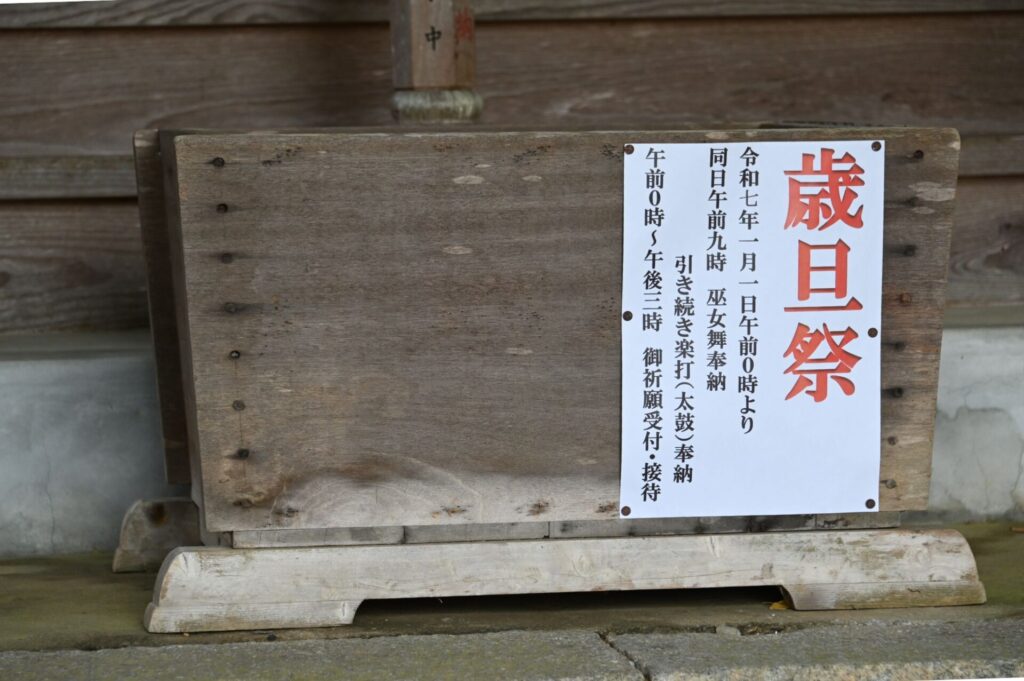 歳旦祭
令和七年一月一日午前0時より
同日午前九時 巫女舞奉納
引き続き楽打(太鼓)奉納
午前0時~午後三時 御祈願受付・接待
中